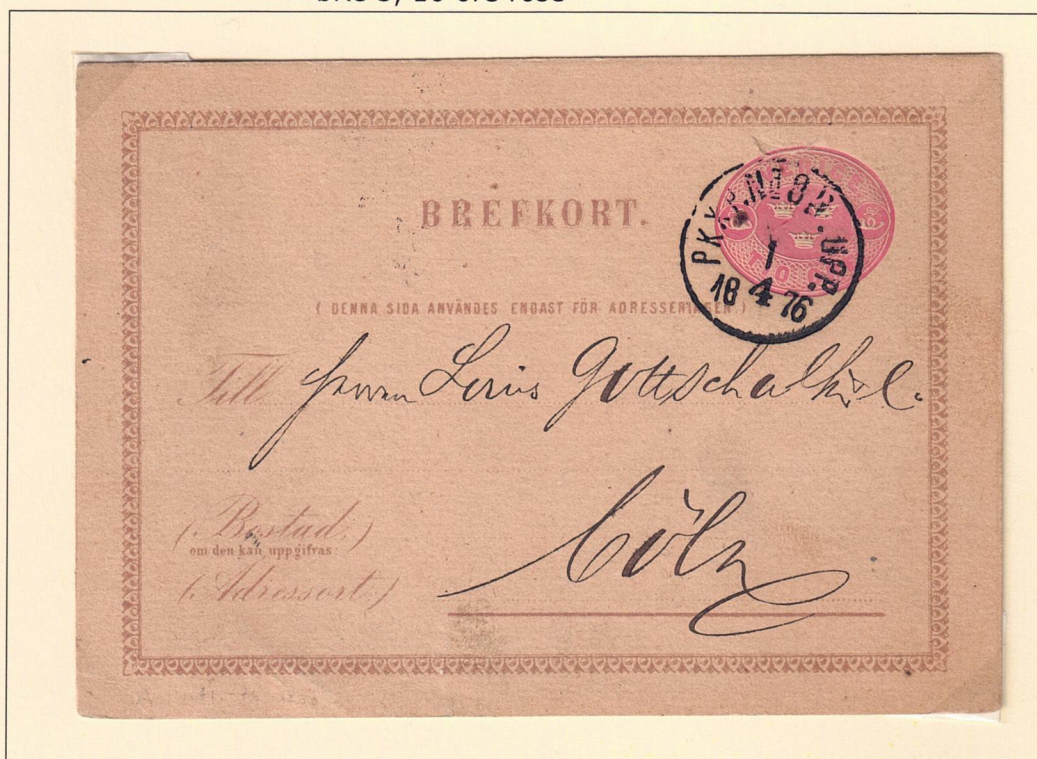 BREFKORT.
PKXP.No 82.UPP.
1
18 4 76
( DENNA SIDA ANVÄNDES ENDAST FÖR ADRESSERINGEN.)
Till Herrn Louis Gottschalk
(Bostad,)
om den kan uppgifvas:
Cöln
(Adressort.)